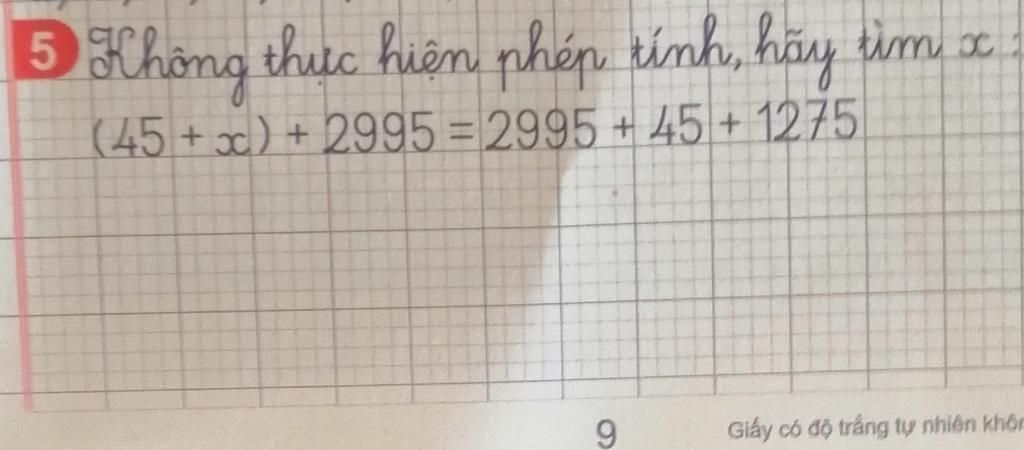 5 Không thực hiện phép tính, hãy tìm x :
(45 + x) + 2995 = 2995 + 45 + 1275
9
Giấy có độ trắng tự nhiên